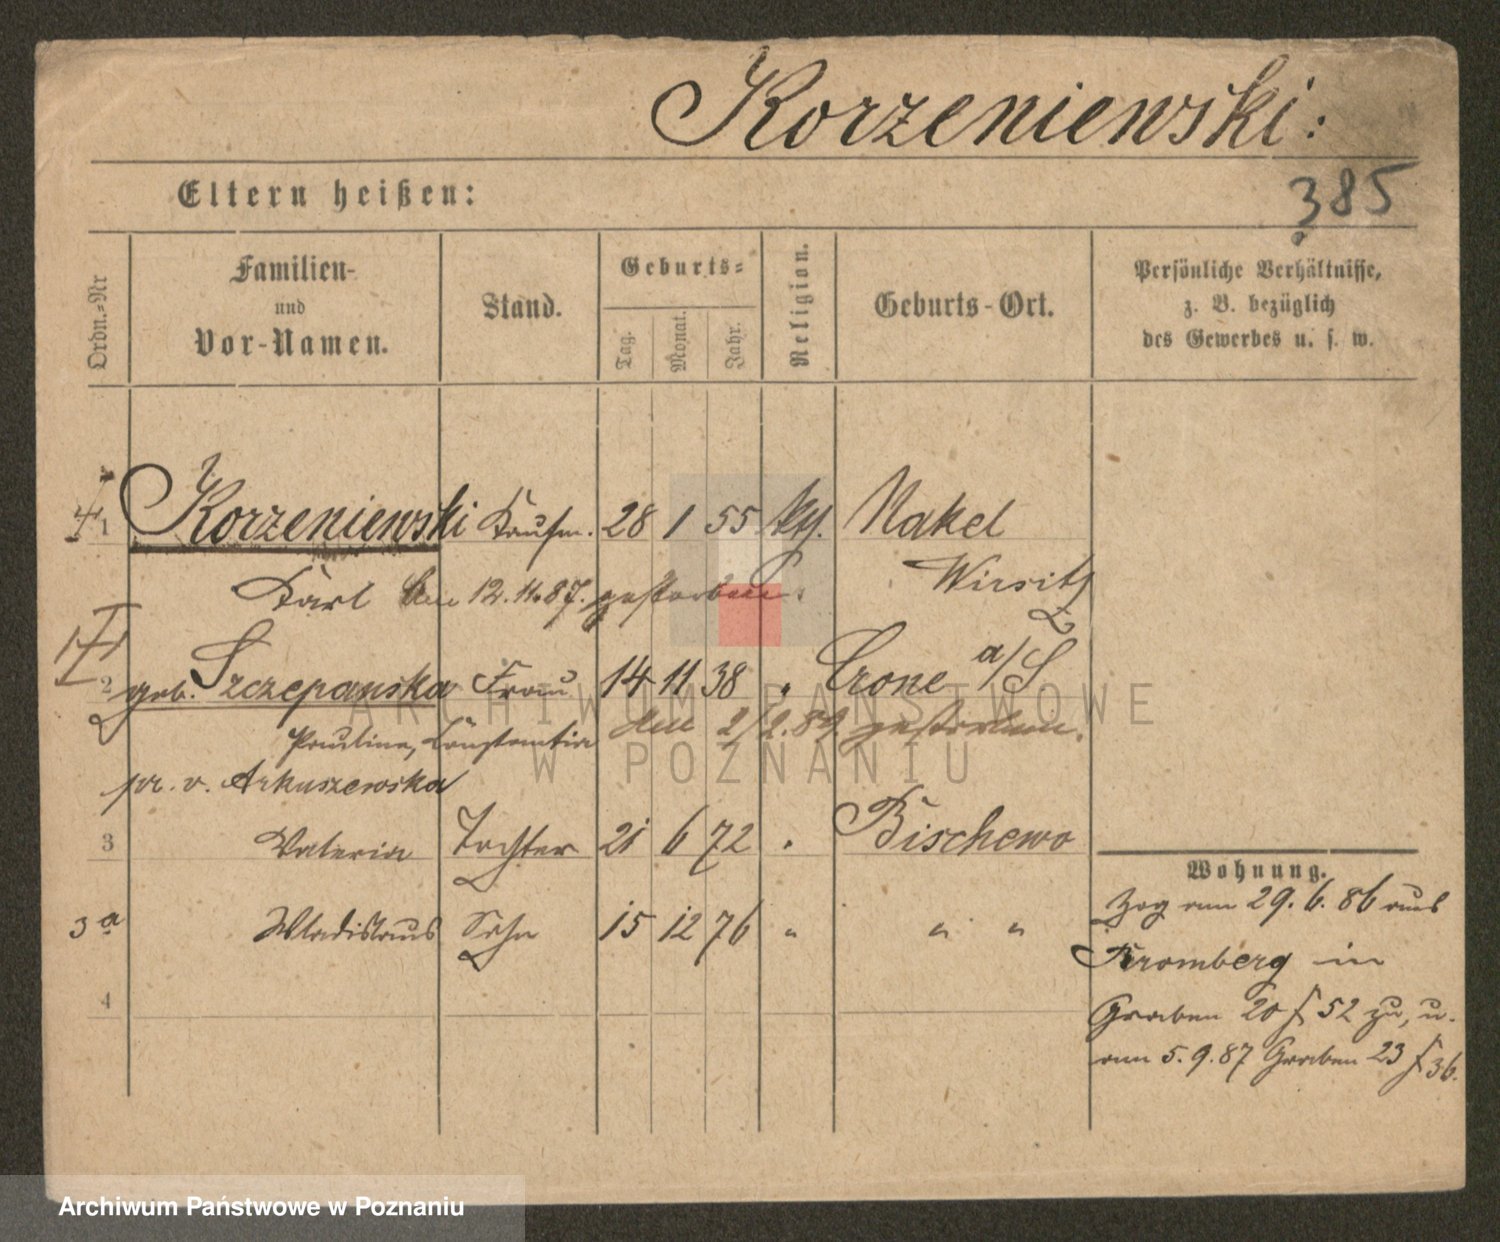 Korzeniewski:
385
Eltern heißen:
Ordn.-Nr
Familien-
und
Vor-Namen.
Stand.
Geburts-
Tag.
Monat.
Jahr.
Religion.
Geburts-Ort.
Persönliche Verhältnisse,
z. B. bezüglich
des Gewerbes u. s. w.
1 Korzeniewski Kaufm. 28 1 55 Nakel
Karl Am 12. 11. 87. gestorben. Wirsitz
2 geb. Szczepanska Frau 14 11 38 " Crone a/S
Pauline, Constantia den 2/2. 89 gestorben.
pr. v. Arkuszewska
3 Valeria Tochter 21 6 72 " Bischewo
3a Wladislaus Sohn 15 12 76 " " "
4
Wohnung.
Zog am 29. 6. 86 aus
Bromberg in
Graben 20 f 52 zu, u.
am 5. 9. 87 Graben 23 f 36.
ARCHIWUM PAŃSTWOWE
W POZNANIU
Archiwum Państwowe w Poznaniu